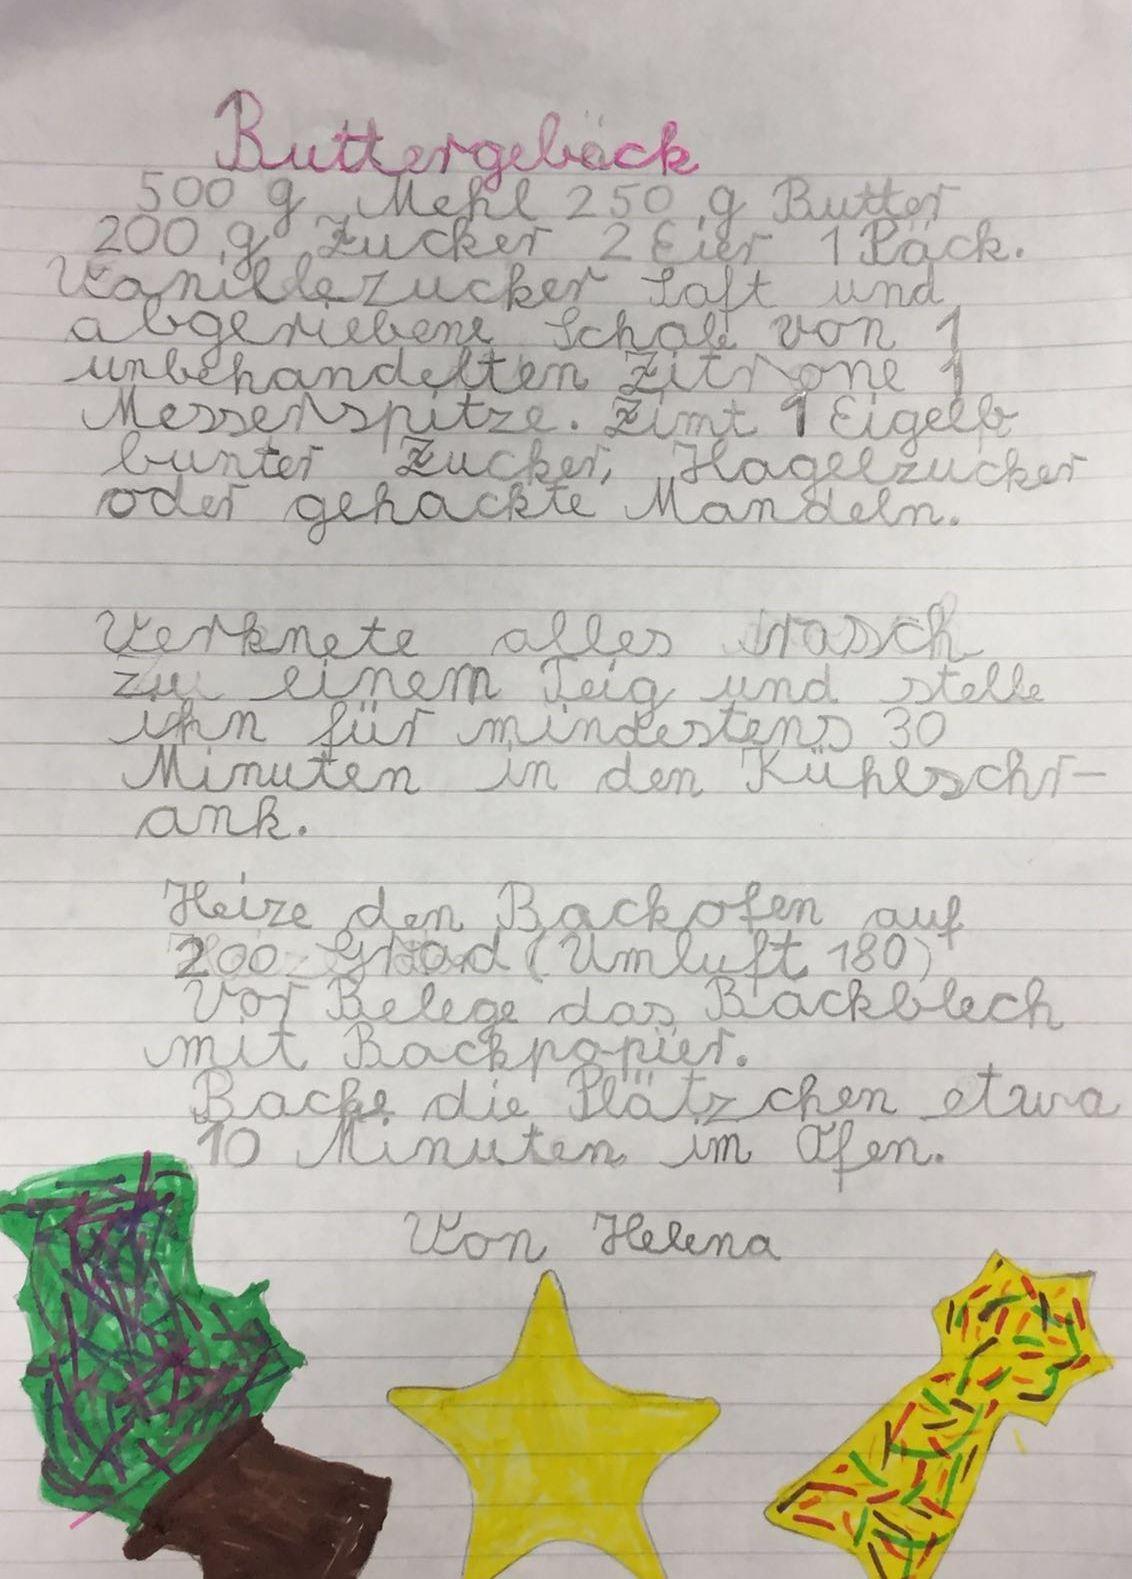 Buttergebäck
500 g Mehl 250 g Butter
200 g Zucker 2 Eier 1 Päck.
Vanillezucker Saft und
abgeriebene Schale von 1
unbehandelten Zitrone 1
Messerspitze. Zimt 1 Eigelb
bunter Zucker, Hagelzucker
oder gehackte Mandeln.
Verknete alles rasch
zu einem Teig und stelle
ihn für mindestens 30
Minuten in den Kühlschr-
ank.
Heize den Backofen auf
200 Grad (Umluft 180)
Vor Belege das Backblech
mit Backpapier.
Backe die Plätzchen etwa
10 Minuten im Ofen.
Von Helena